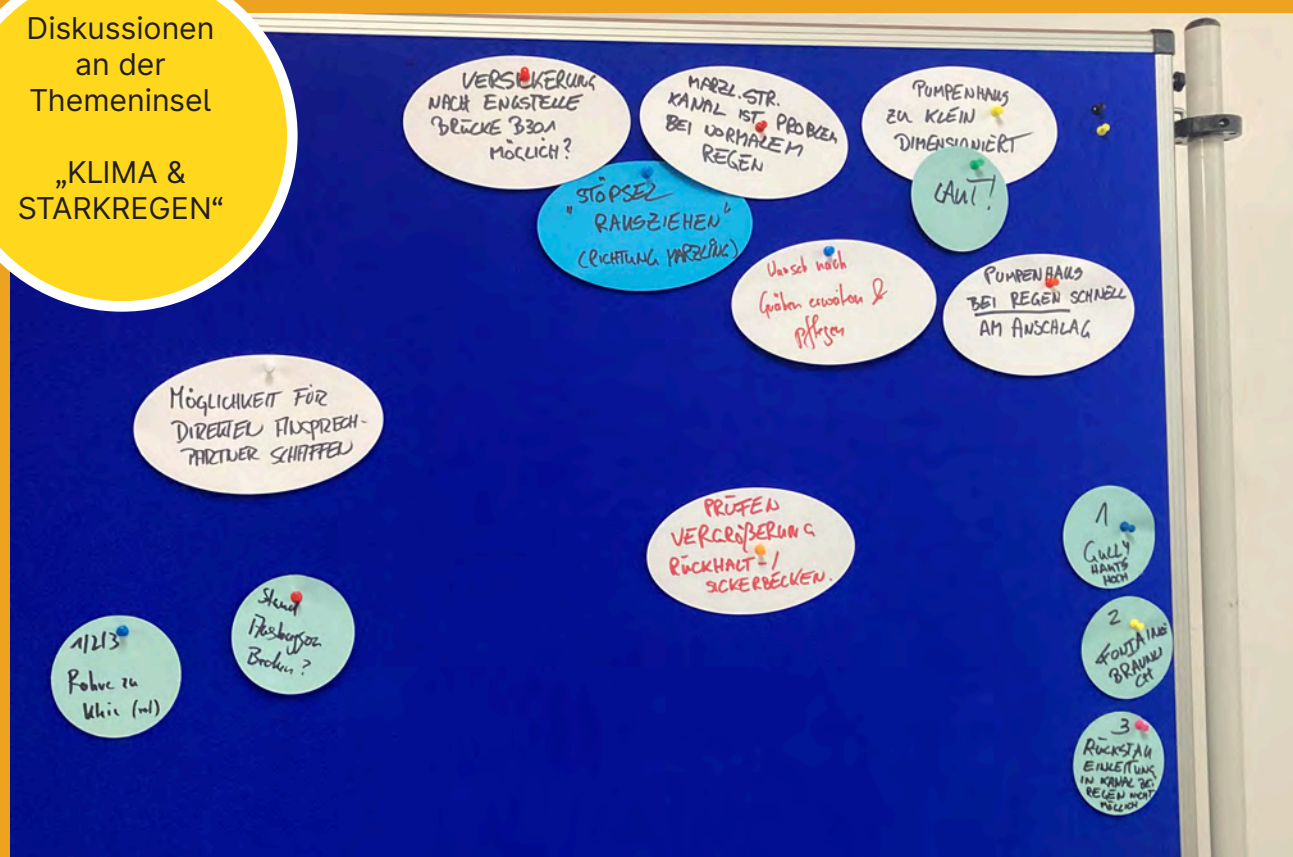 Diskussionen
an der
Themeninsel
„KLIMA &
STARKREGEN“
VERSICKERUNG
NACH ENGSTELLE
BRÜCKE B301
MÖGLICH?
MARZL. STR.
KANAL IST PROBLEM
BEI NORMALEM
REGEN
PUMPENHAUS
ZU KLEIN
DIMENSIONIERT
LAUT!
„STÖPSEL
RAUSZIEHEN“
(RICHTUNG MARZLING)
Wunsch nach
Gräben &
Pflegen
PUMPENHAUS
BEI REGEN SCHNELL
AM ANSCHLAG
MÖGLICHKEIT FÜR
DIREKTEN ANSPRECH-
PARTNER SCHAFFEN
PRÜFEN
VERGRÖßERUNG
RÜCKHALT-/
SICKERBECKEN.
1
GULLY
HOCH
2
FONTAINE
BRAUNU
CH
3
RÜCKSTAU
EINLEITUNG
IN KANAL BEI
REGEN NICHT
MÖGLICH
1/2/3
Rohre zu
Stand
?